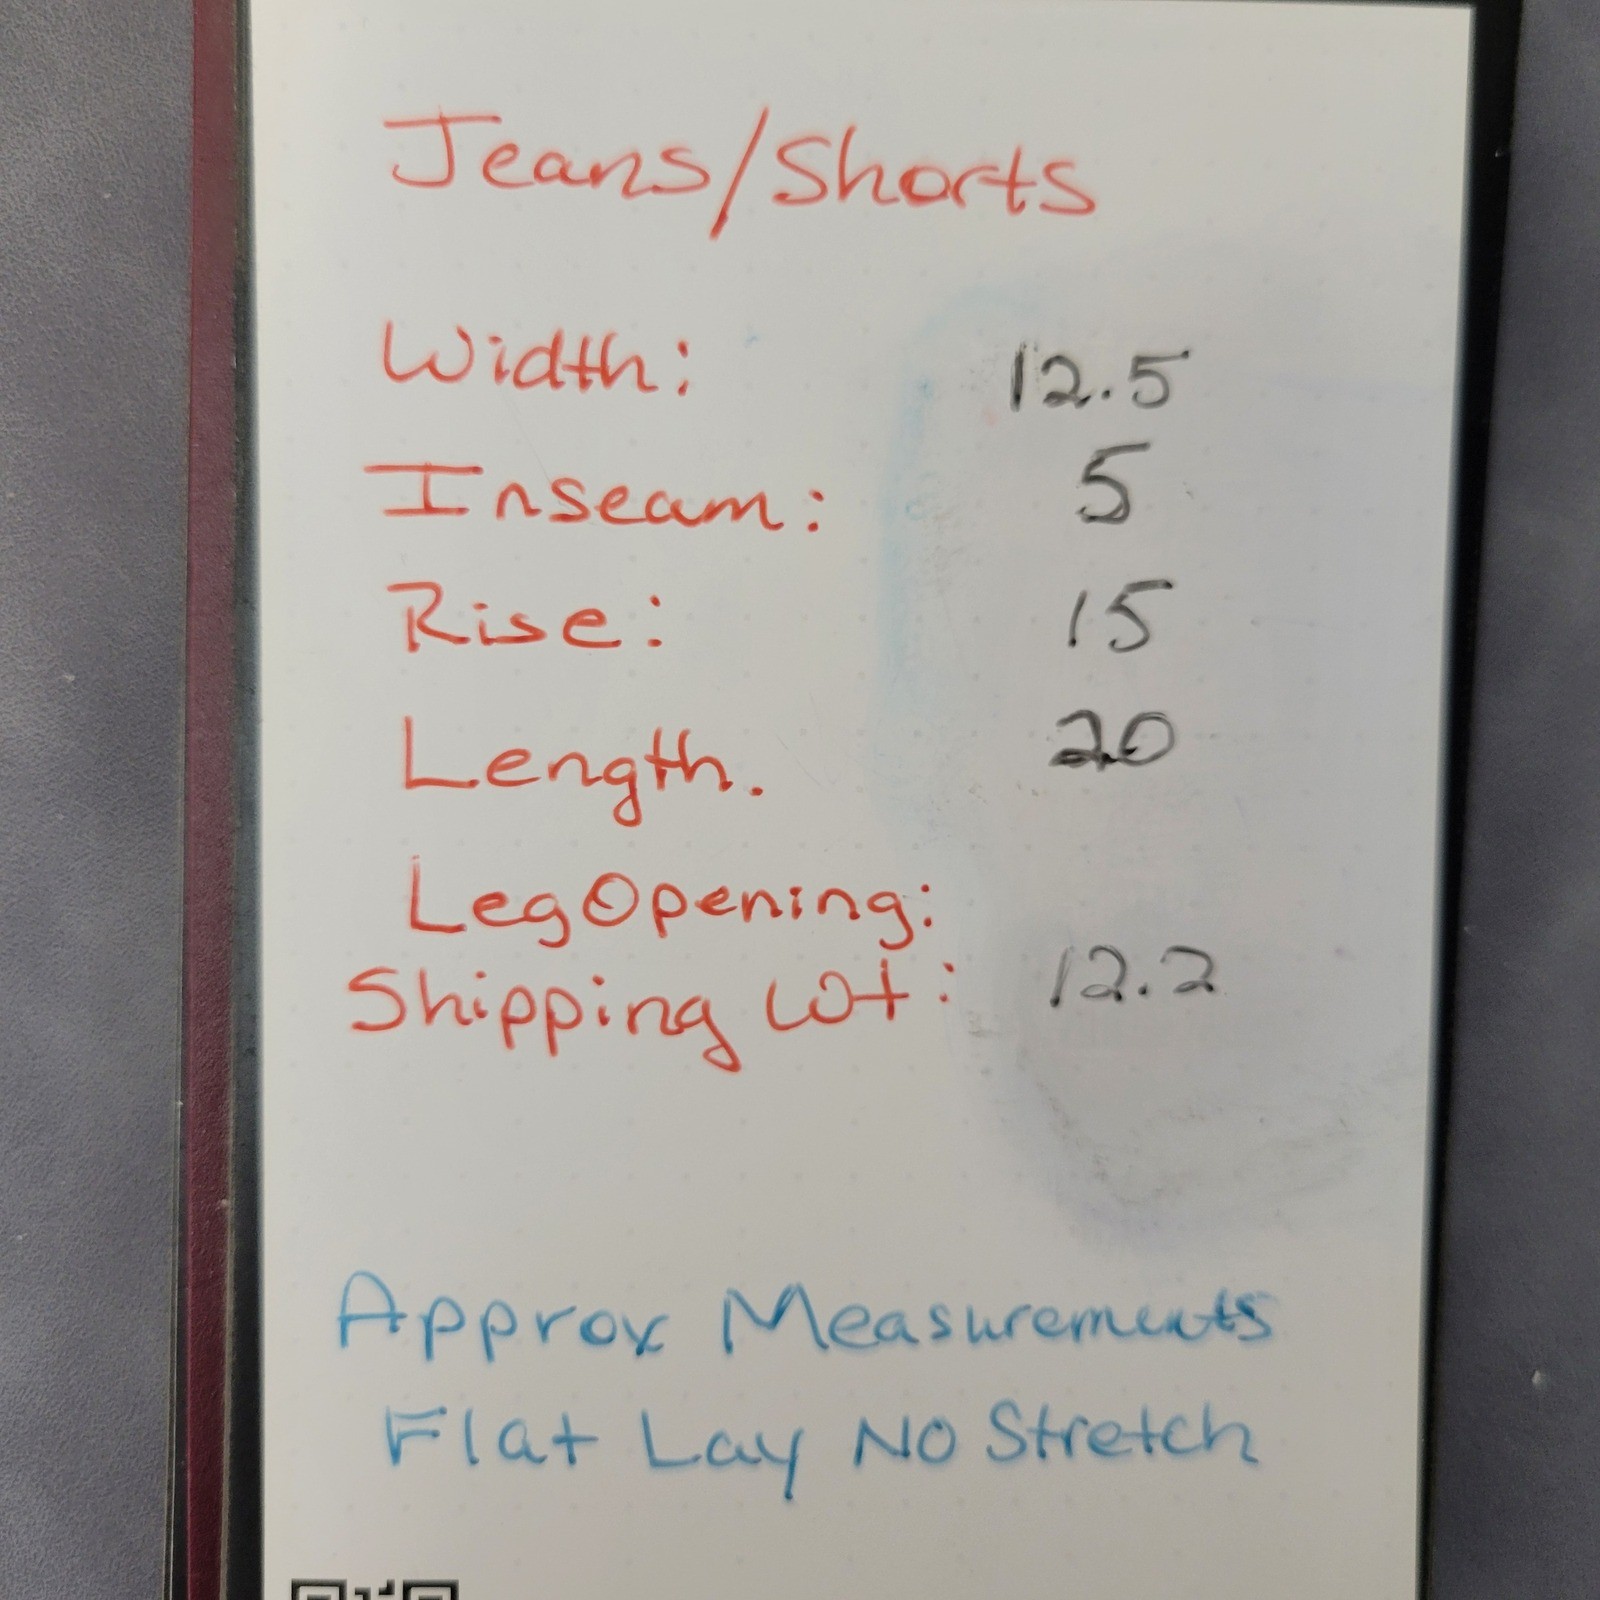 Jeans/Shorts
Width: 12.5
Inseam: 5
Rise: 15
Length. 20
Leg Opening:
Shipping Wt: 12.2
Approx Measurements
Flat Lay No Stretch